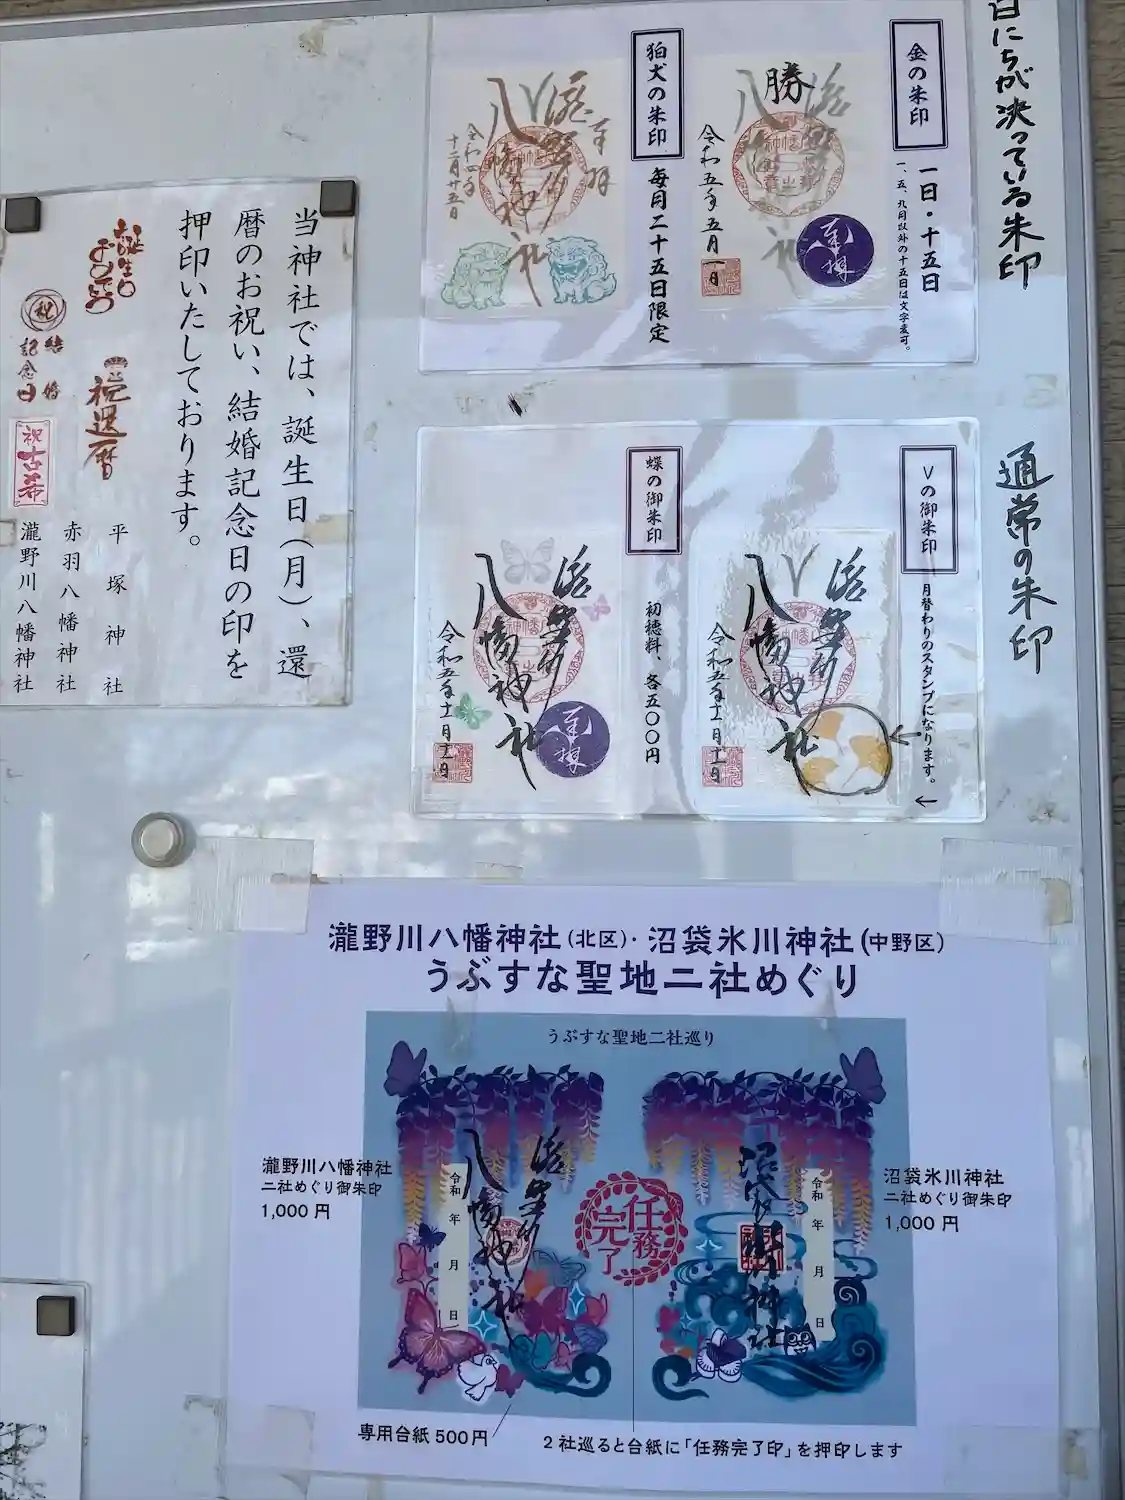 日にちが決っている朱印
金の朱印
一日・十五日
一、五、九月以外の十五日は文字変可。
勝
瀧野川
八幡神社
奉拝
令和五年五月一日
狛犬の朱印
毎月二十五日限定
奉拝
瀧野川
八幡神社
令和四年
十二月廿五日
通常の朱印
Vの御朱印
月替わりのスタンプになります。
瀧野川
八幡神社
令和五年十一月十一日
蝶の御朱印
初穂料、各五〇〇円
瀧野川
八幡神社
奉拝
令和五年十一月十一日
当神社では、誕生日(月)、還
暦のお祝い、結婚記念日の印を
押印いたしております。
誕生日
おめでとう
祝還暦
祝
結婚
記念日
祝古希
平塚神社
赤羽八幡神社
瀧野川八幡神社
瀧野川八幡神社(北区)・沼袋氷川神社(中野区)
うぶすな聖地二社めぐり
うぶすな聖地二社巡り
瀧野川八幡神社
二社めぐり御朱印
1,000 円
瀧野川
八幡神社
令和 年 月 日
任務
完了
沼袋氷川神社
令和 年 月 日
沼袋氷川神社
二社めぐり御朱印
1,000 円
専用台紙500円
2社巡ると台紙に「任務完了印」を押印します